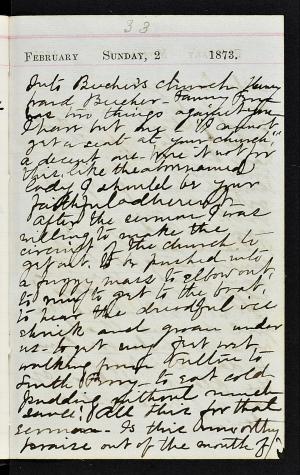 33
FEBRUARY SUNDAY, 2 1873.
Into Beecher's church. Henry
Ward Beecher - Fanny Fern
has two things against you
I have but one. "I cannot
get a seat at your church,"
a decent one. Were it not for
this, like the aforenamed
lady I should be your
faithful adherent.
After the sermon I was
willing to make the
circuit of the church to
get out. To be pushed into
a fuzzy mass to elbow out,
to run to get to the boat,
to hear the dreadful ice
shriek and groan under
us - to get my feet wet
walking from Fulton to
South Ferry - to eat cold
pudding without much
sauce! All this for that
sermon - Is this unworthy
praise out of the mouth of